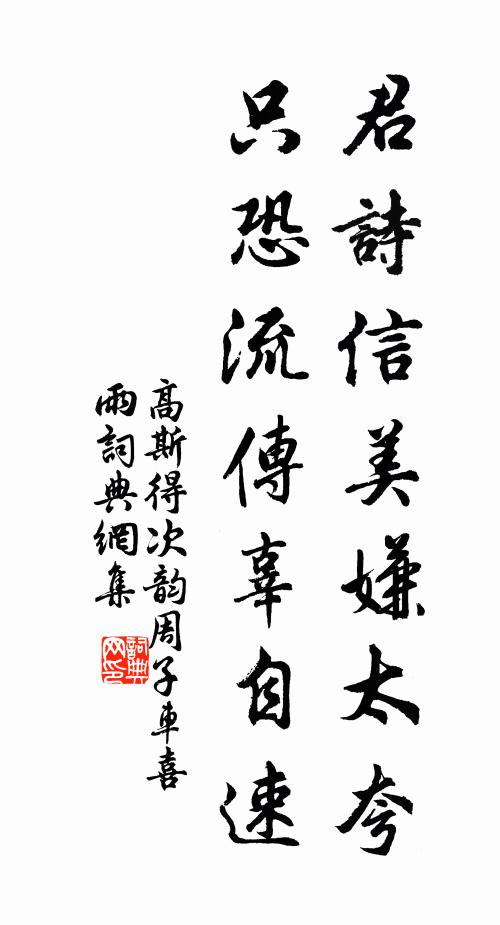 君詩信美嫌太夸
只恐流傳辜自速
高斯得次韵周子車喜
雨詞典網集
詞典
网印